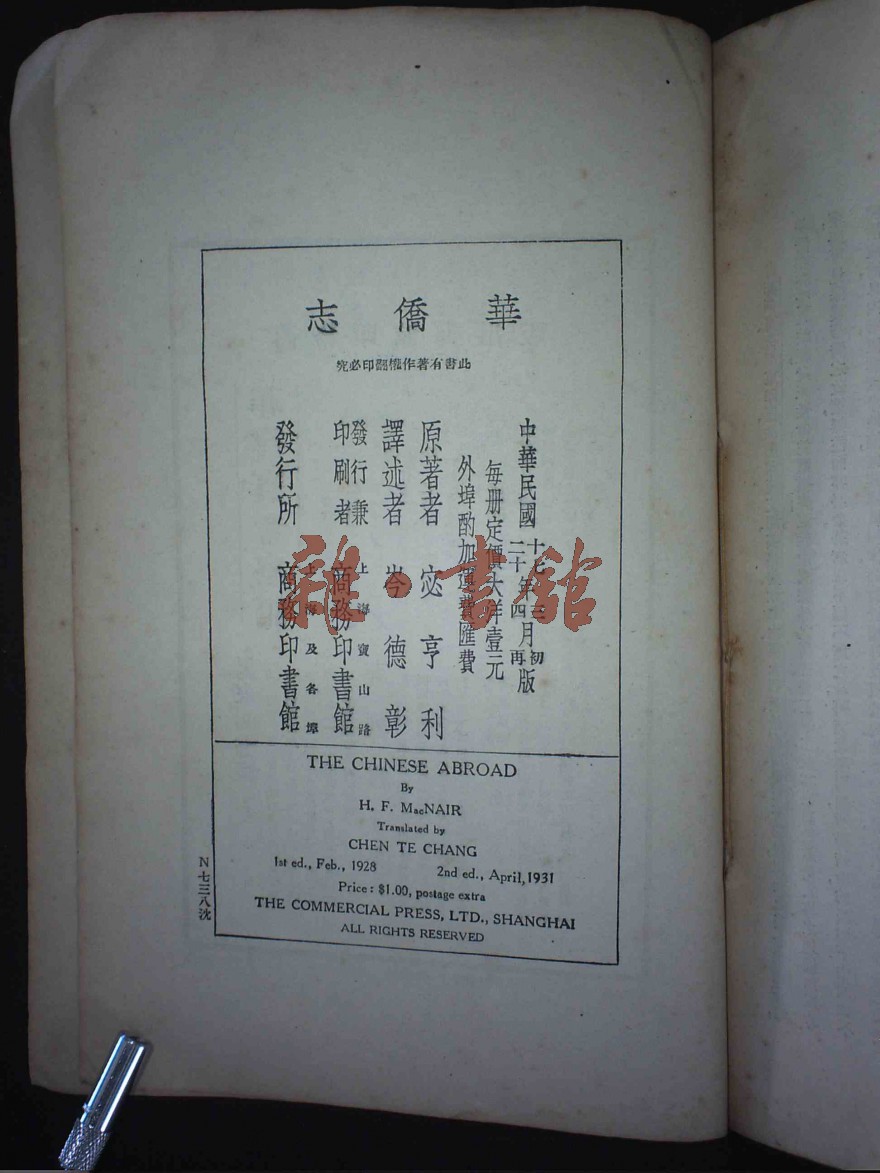 華僑志
此書有著作權翻印必究
中華民國十七年二月初版
二十年四月再版
每册定價大洋壹元
外埠酌加運費匯費
原著者 宓亨利
譯述者 岑德彰
發行兼印刷者 上海寶山路 商務印書館
發行所 上海及各埠 商務印書館
雜·書館
THE CHINESE ABROAD
By
H. F. MacNAIR
Translated by
CHEN TE CHANG
1st ed., Feb., 1928 2nd ed., April, 1931
Price: $1.00, postage extra
THE COMMERCIAL PRESS, LTD., SHANGHAI
ALL RIGHTS RESERVED
N七三八沈